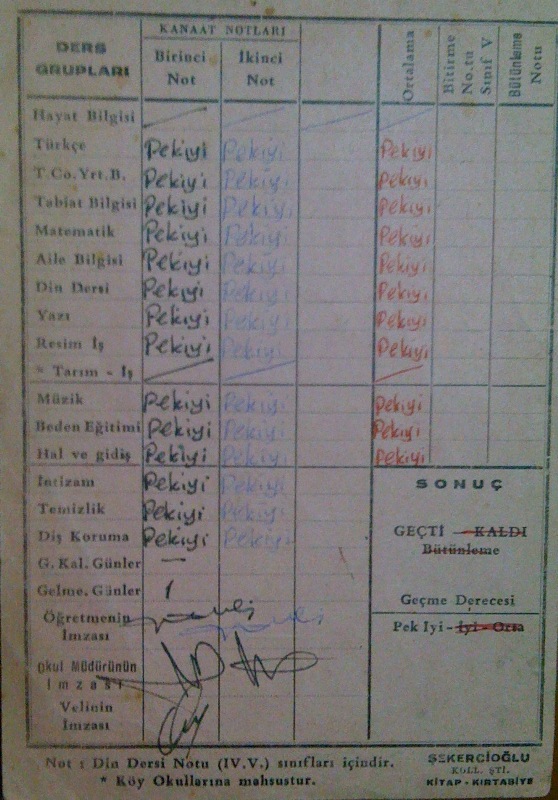 DERS GRUPLARI KANAAT NOTLARI Ortalama Bitirme No.tu Sınıf V Bütünleme Notu
Birinci Not İkinci Not
Hayat Bilgisi
Türkçe Pekiyi Pekiyi Pekiyi
T.Co.Yrt.B. Pekiyi Pekiyi Pekiyi
Tabiat Bilgisi Pekiyi Pekiyi Pekiyi
Matematik Pekiyi Pekiyi Pekiyi
Aile Bilgisi Pekiyi Pekiyi Pekiyi
Din Dersi Pekiyi Pekiyi Pekiyi
Yazı Pekiyi Pekiyi Pekiyi
Resim İş Pekiyi Pekiyi Pekiyi
* Tarım - İş
Müzik Pekiyi Pekiyi Pekiyi
Beden Eğitimi Pekiyi Pekiyi Pekiyi
Hal ve gidiş Pekiyi Pekiyi Pekiyi
İntizam Pekiyi Pekiyi
Temizlik Pekiyi Pekiyi
Diş Koruma Pekiyi Pekiyi
G. Kal. Günler —
Gelme. Günler 1
Öğretmenin İmzası
Okul Müdürünün İmzası
Velinin İmzası
SONUÇ
GEÇTİ - KALDI
Bütünleme
Geçme Derecesi
Pek İyi - İyi - Orta
Not : Din Dersi Notu (IV.V.) sınıfları içindir.
* Köy Okullarına mahsustur.
ŞEKERCİOĞLU
KOLL. ŞTİ.
KİTAP - KIRTASİYE